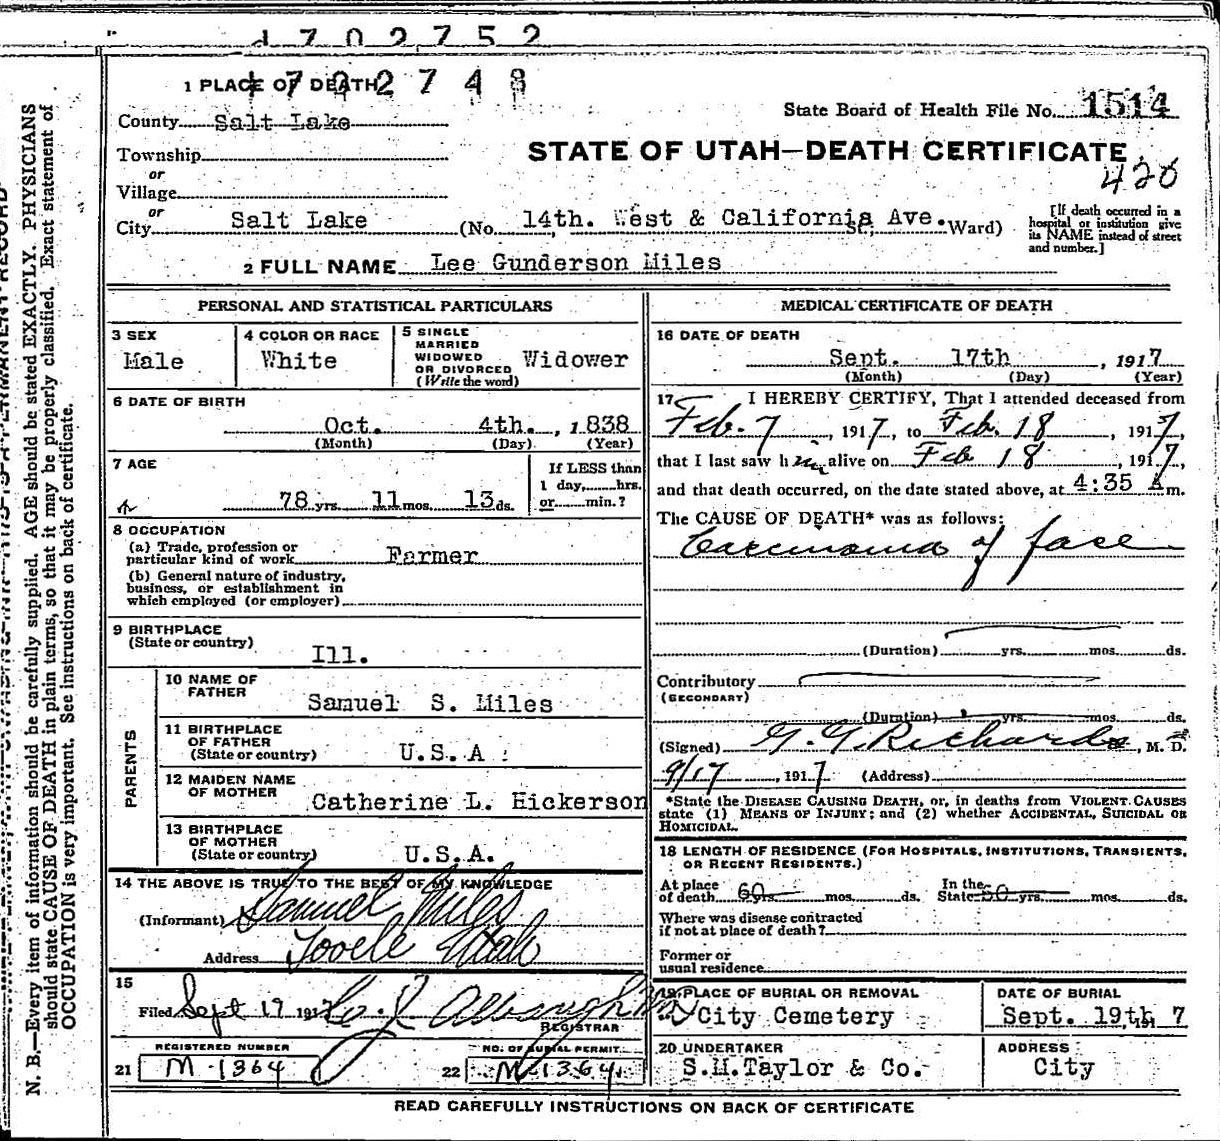 1702752
1 PLACE OF DEATH
1722748
State Board of Health File No. 1514
County Salt Lake
STATE OF UTAH—DEATH CERTIFICATE
Township
or
Village
or
City Salt Lake (No. 14th. West & California Ave. St.; Ward)
[If death occurred in a hospital or institution give its NAME instead of street and number.]
2 FULL NAME Lee Gunderson Miles
PERSONAL AND STATISTICAL PARTICULARS
3 SEX
Male
4 COLOR OR RACE
White
5 SINGLE
MARRIED
WIDOWED
OR DIVORCED
(Write the word)
Widower
6 DATE OF BIRTH
Oct. 4th. , 1838
(Month) (Day) (Year)
7 AGE
78 yrs. 11 mos. 13 ds.
If LESS than
1 day, hrs.
or min.?
8 OCCUPATION
(a) Trade, profession or
particular kind of work Farmer
(b) General nature of industry,
business, or establishment in
which employed (or employer)
9 BIRTHPLACE
(State or country)
Ill.
PARENTS
10 NAME OF
FATHER
Samuel S. Miles
11 BIRTHPLACE
OF FATHER
(State or country) U.S.A.
12 MAIDEN NAME
OF MOTHER
Catherine L. Hickerson
13 BIRTHPLACE
OF MOTHER
(State or country) U.S.A.
14 THE ABOVE IS TRUE TO THE BEST OF MY KNOWLEDGE
(Informant) Samuel Miles
Address Tooele Utah
15
Filed Sept 17 1917
REGISTRAR
REGISTERED NUMBER
21 M-1364
NO. OF BURIAL PERMIT
22 M-1364
MEDICAL CERTIFICATE OF DEATH
16 DATE OF DEATH
Sept. 17th , 1917
(Month) (Day) (Year)
17 I HEREBY CERTIFY, That I attended deceased from
Feb. 7 , 1917, to Feb. 18 , 1917,
that I last saw him alive on Feb 18 , 1917,
and that death occurred, on the date stated above, at 4:35 Am.
The CAUSE OF DEATH* was as follows:
Carcinoma of face
(Duration) yrs. mos. ds.
Contributory
(SECONDARY)
(Duration) yrs. mos. ds.
(Signed) G. G. Richards, M. D.
9/17 , 1917 (Address)
*State the DISEASE CAUSING DEATH, or, in deaths from VIOLENT CAUSES
state (1) MEANS OF INJURY; and (2) whether ACCIDENTAL, SUICIDAL OR
HOMICIDAL.
18 LENGTH OF RESIDENCE (FOR HOSPITALS, INSTITUTIONS, TRANSIENTS,
OR RECENT RESIDENTS.)
At place
of death 60 yrs. mos. ds. In the
State 50 yrs. mos. ds.
Where was disease contracted
if not at place of death?
Former or
usual residence
19 PLACE OF BURIAL OR REMOVAL
City Cemetery
DATE OF BURIAL
Sept. 19th, 1917
20 UNDERTAKER
S.M.Taylor & Co.
ADDRESS
City
READ CAREFULLY INSTRUCTIONS ON BACK OF CERTIFICATE
N. B.—Every item of information should be carefully supplied. AGE should be stated EXACTLY. PHYSICIANS
should state CAUSE OF DEATH in plain terms, so that it may be properly classified. Exact statement of
OCCUPATION is very important. See instructions on back of certificate.